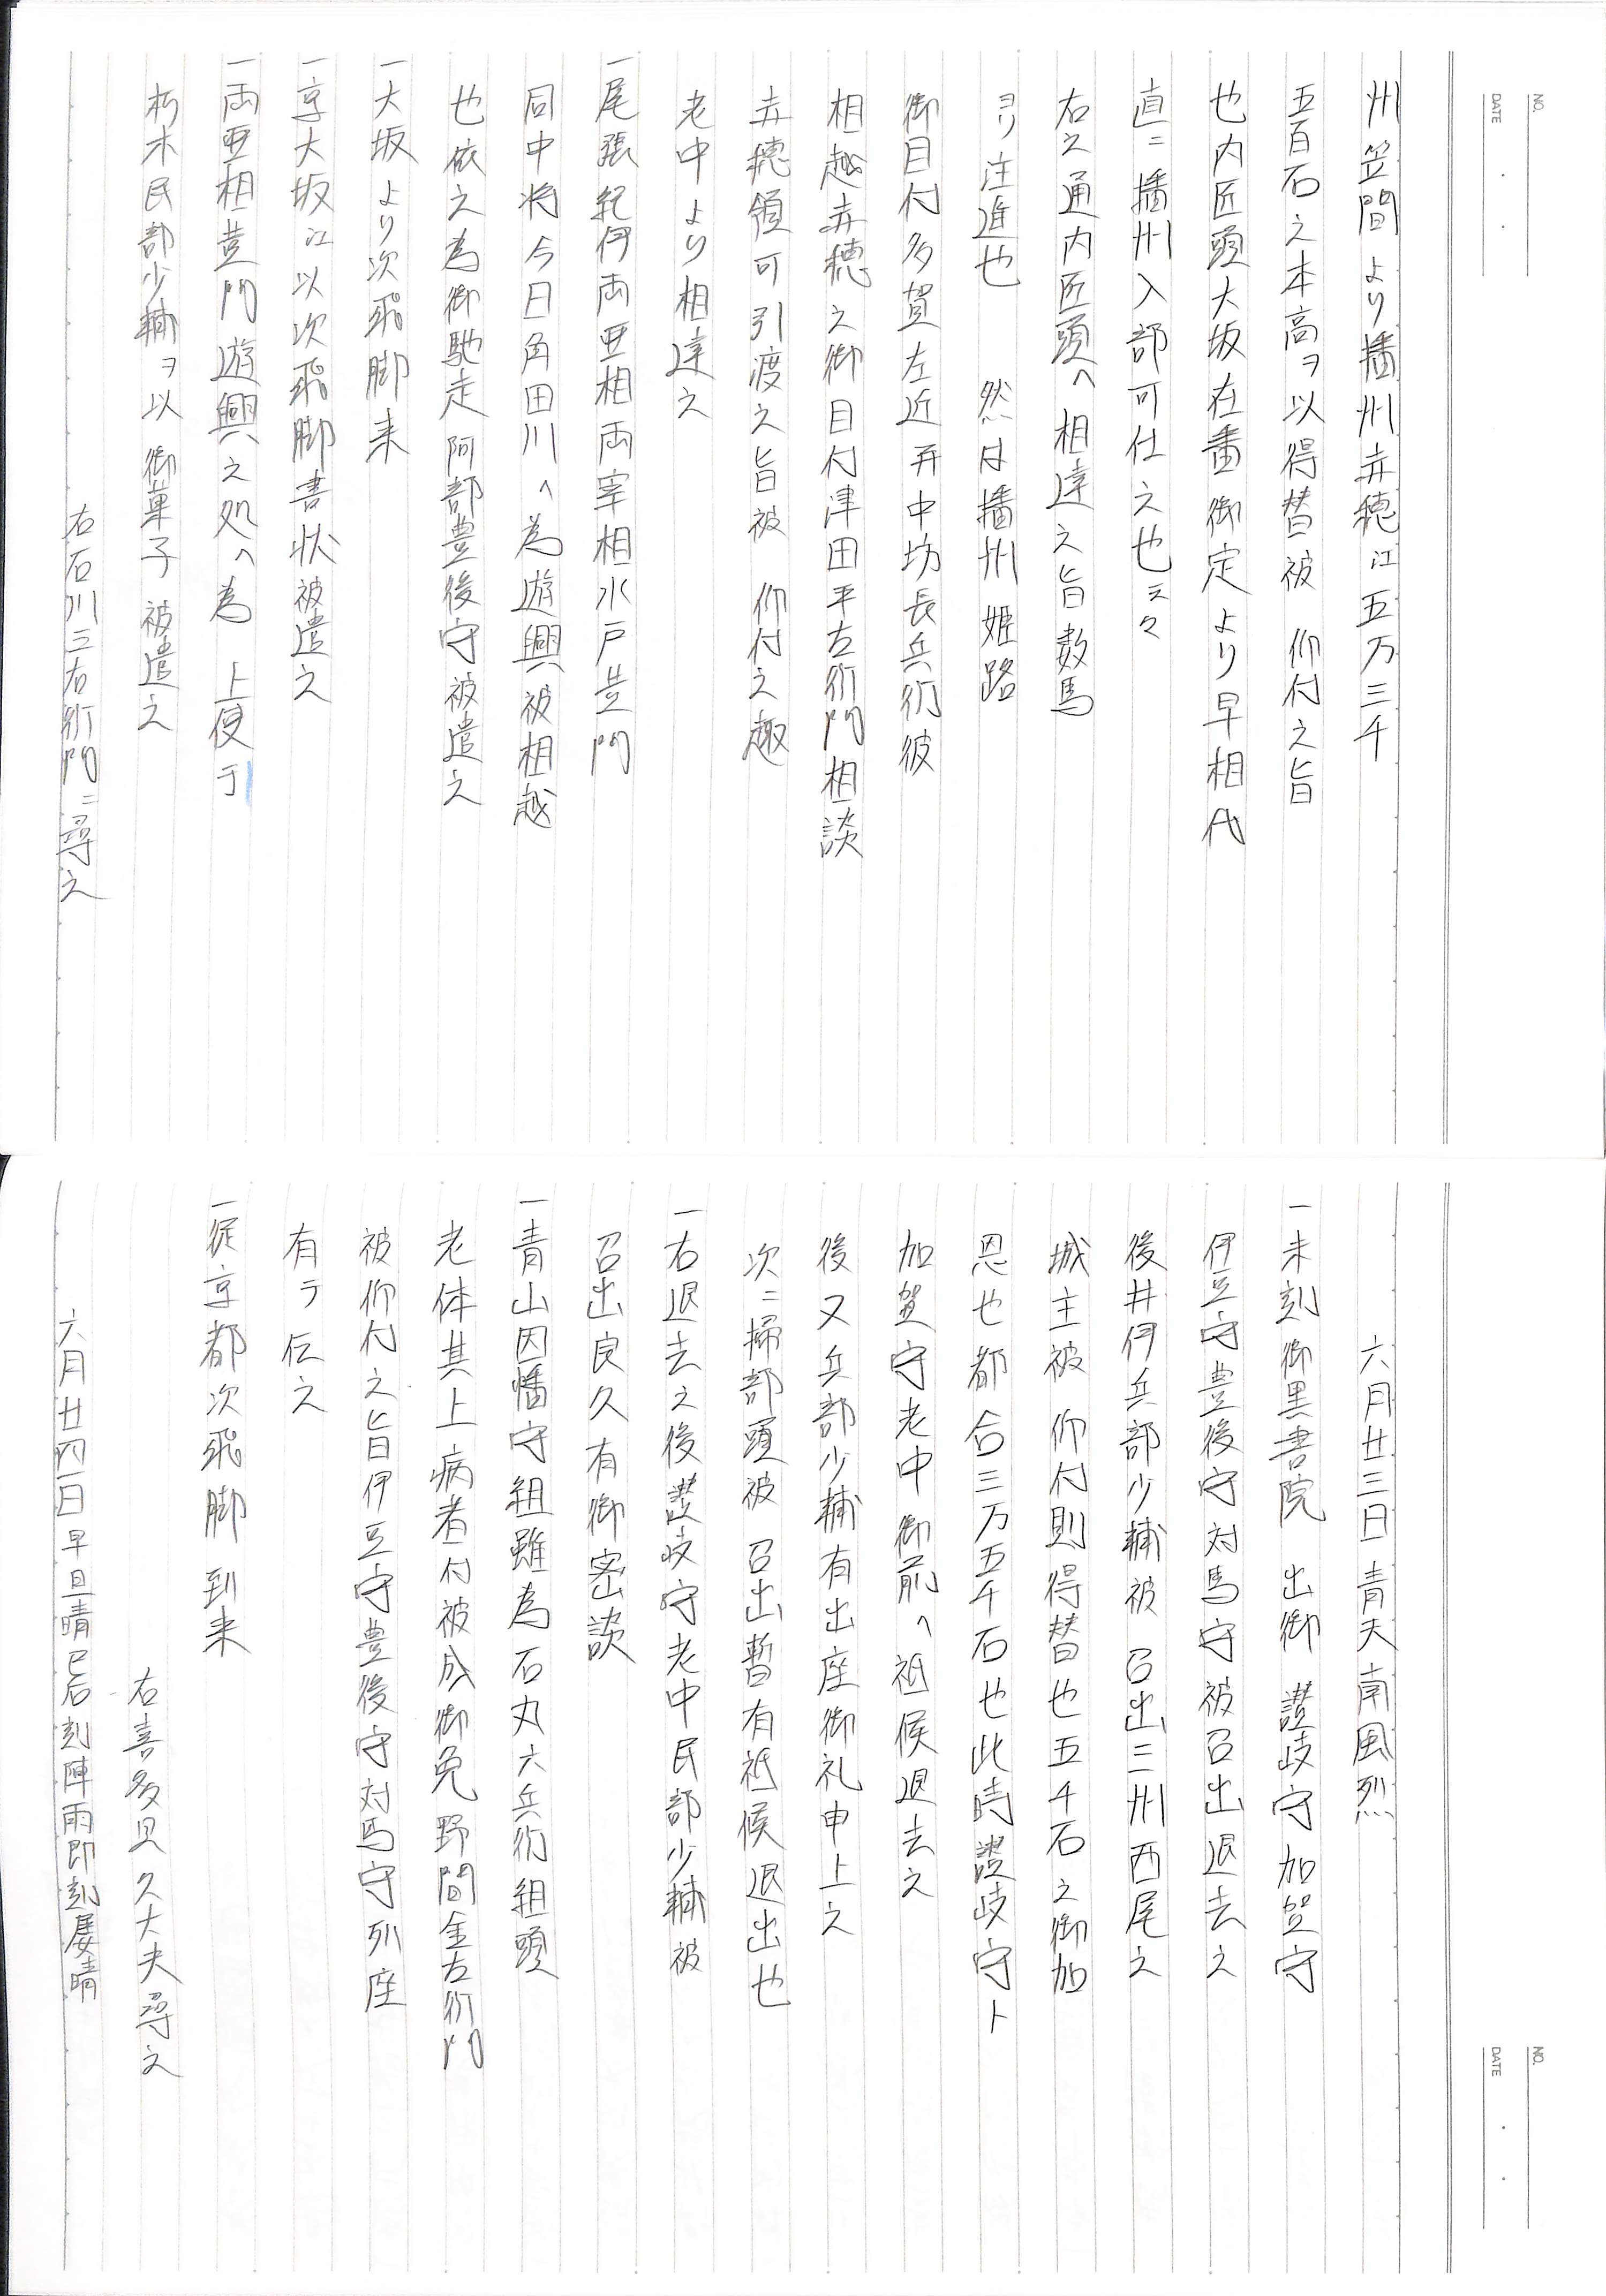 NO.
DATE
州笠間より播州赤穂江五万三千
五百石之本高ヲ以得替被 仰付之旨
也内匠頭大坂在番御定より早相代
直ニ播州入部可仕之也云々
右之通内匠頭へ相達之旨数馬
ヨリ注進也 然は播州姫路
御目付多賀左近并中坊長兵衛彼
相越赤穂之御目付津田平左衛門相談
赤穂領可引渡之旨被 仰付之趣
老中より相達之
一尾張紀伊両亜相両宰相水戸黄門
同中将今日角田川へ為遊興被相越
也依之為御馳走阿部豊後守被遣之
一大坂より次飛脚来
一京大坂江以次飛脚書状被遣之
一両亜相黄門遊興之処へ為 上使于
朽木民部少輔ヲ以御菓子被遣之
右石川三右衛門ニ尋之
NO.
DATE
六月廿三日青天南風烈
一未刻御黒書院 出御 讃岐守加賀守
伊豆守豊後守対馬守被召出退去之
後井伊兵部少輔被 召出三州西尾之
城主被 仰付則得替也五千石之御加
恩也都合三万五千石也此時讃岐守ト
加賀守老中御前へ祗候退去之
後又兵部少輔有出座御礼申上之
次ニ掃部頭被 召出暫有祗候退出也
一右退去之後讃岐守老中民部少輔被
召出良久有御密談
一青山因幡守組雖為石丸六兵衛組頭
老体其上病者付被成御免野間金左衛門
被仰付之旨伊豆守豊後守対馬守列座
有テ伝之
一従京都次飛脚到来
右喜多見久大夫尋之
六月廿四日早旦晴巳后刻陣雨即刻屡晴